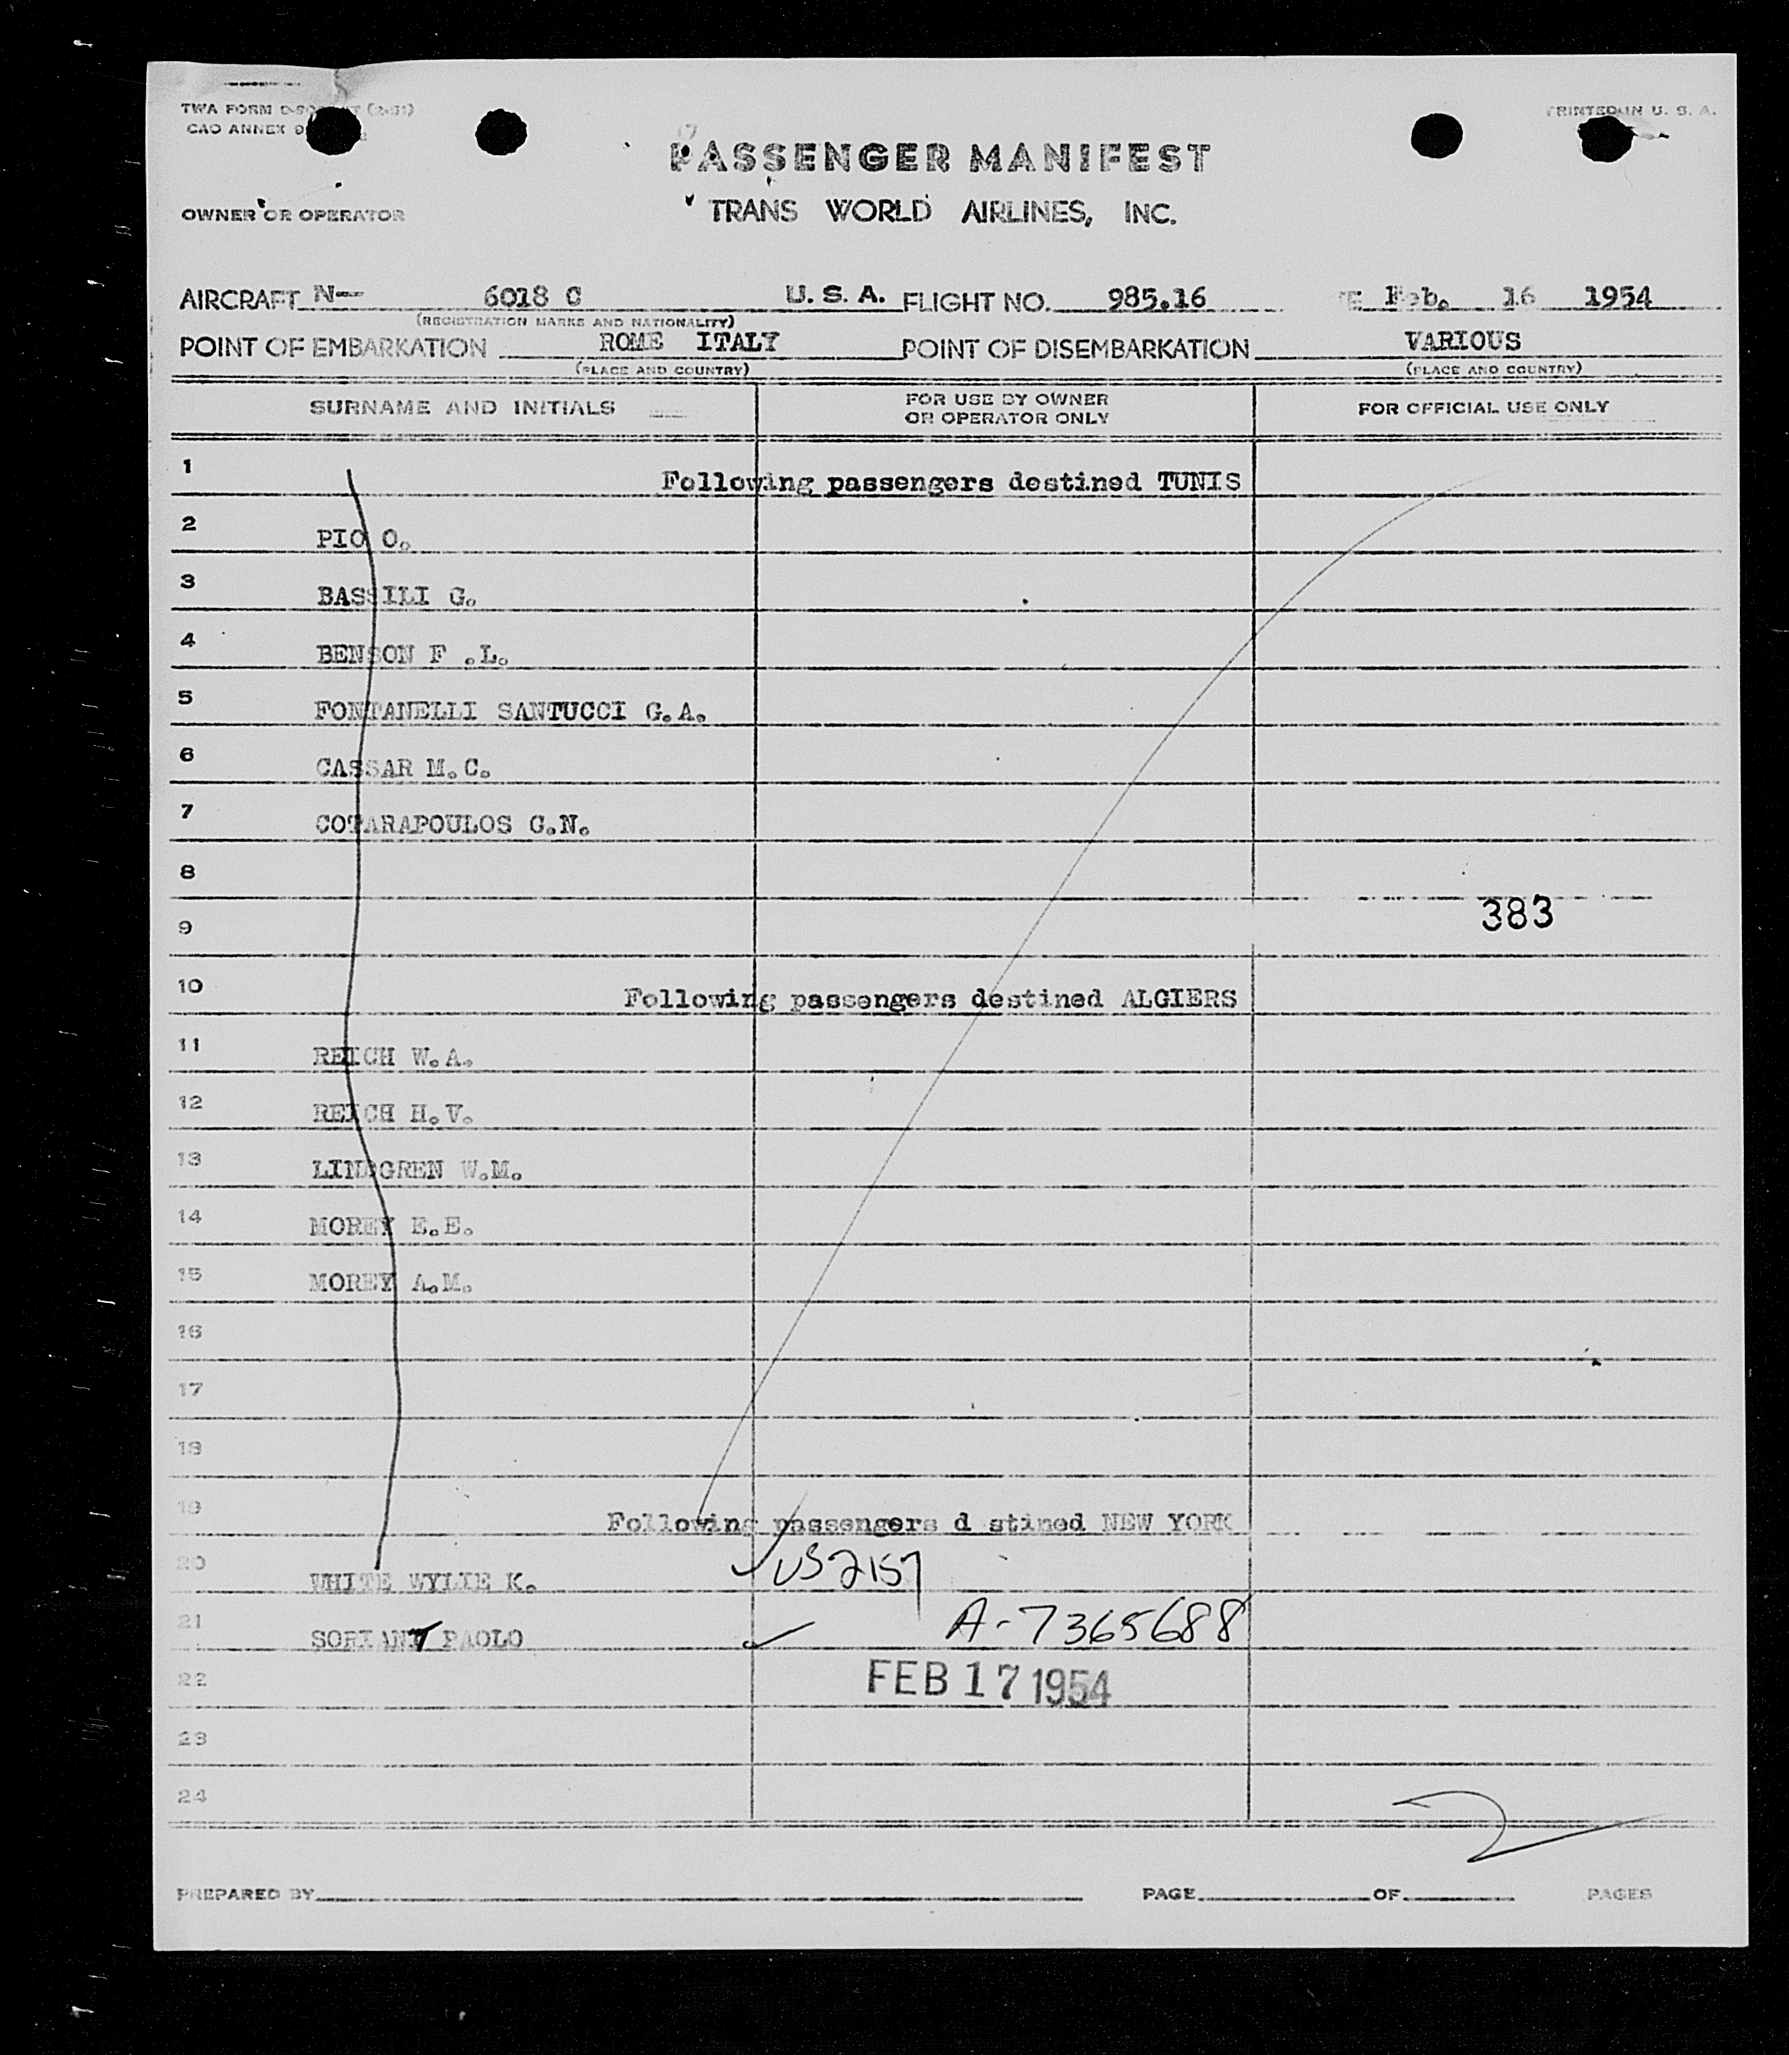 TWA FORM
CAO ANNEX 9
PRINTED IN U. S. A.
PASSENGER MANIFEST
OWNER OR OPERATOR
TRANS WORLD AIRLINES, INC.
AIRCRAFT N-- 6018 C U. S. A. FLIGHT NO. 985.16 Feb. 16 1954
(REGISTRATION MARKS AND NATIONALITY)
POINT OF EMBARKATION ROME ITALY POINT OF DISEMBARKATION VARIOUS
(PLACE AND COUNTRY) (PLACE AND COUNTRY)
SURNAME AND INITIALS FOR USE BY OWNER OR OPERATOR ONLY FOR OFFICIAL USE ONLY
1 Following passengers destined TUNIS
2 PIO O.
3 BASSILI G.
4 BENSON F .L.
5 FONTANELLI SANTUCCI G.A.
6 CASSAR M.C.
7 COTARAPOULOS G.N.
8
9 383
10 Following passengers destined ALGIERS
11 REICH W.A.
12 REICH H.V.
13 LINDGREN W.M.
14 MOREY E.E.
15 MOREY A.M.
16
17
18
19 Following passengers d stined NEW YORK
20 WHITE WYLIE K. US 2157
21 PAOLO A-7365688
22 FEB 17 1954
23
24
PREPARED BY PAGE OF PAGES